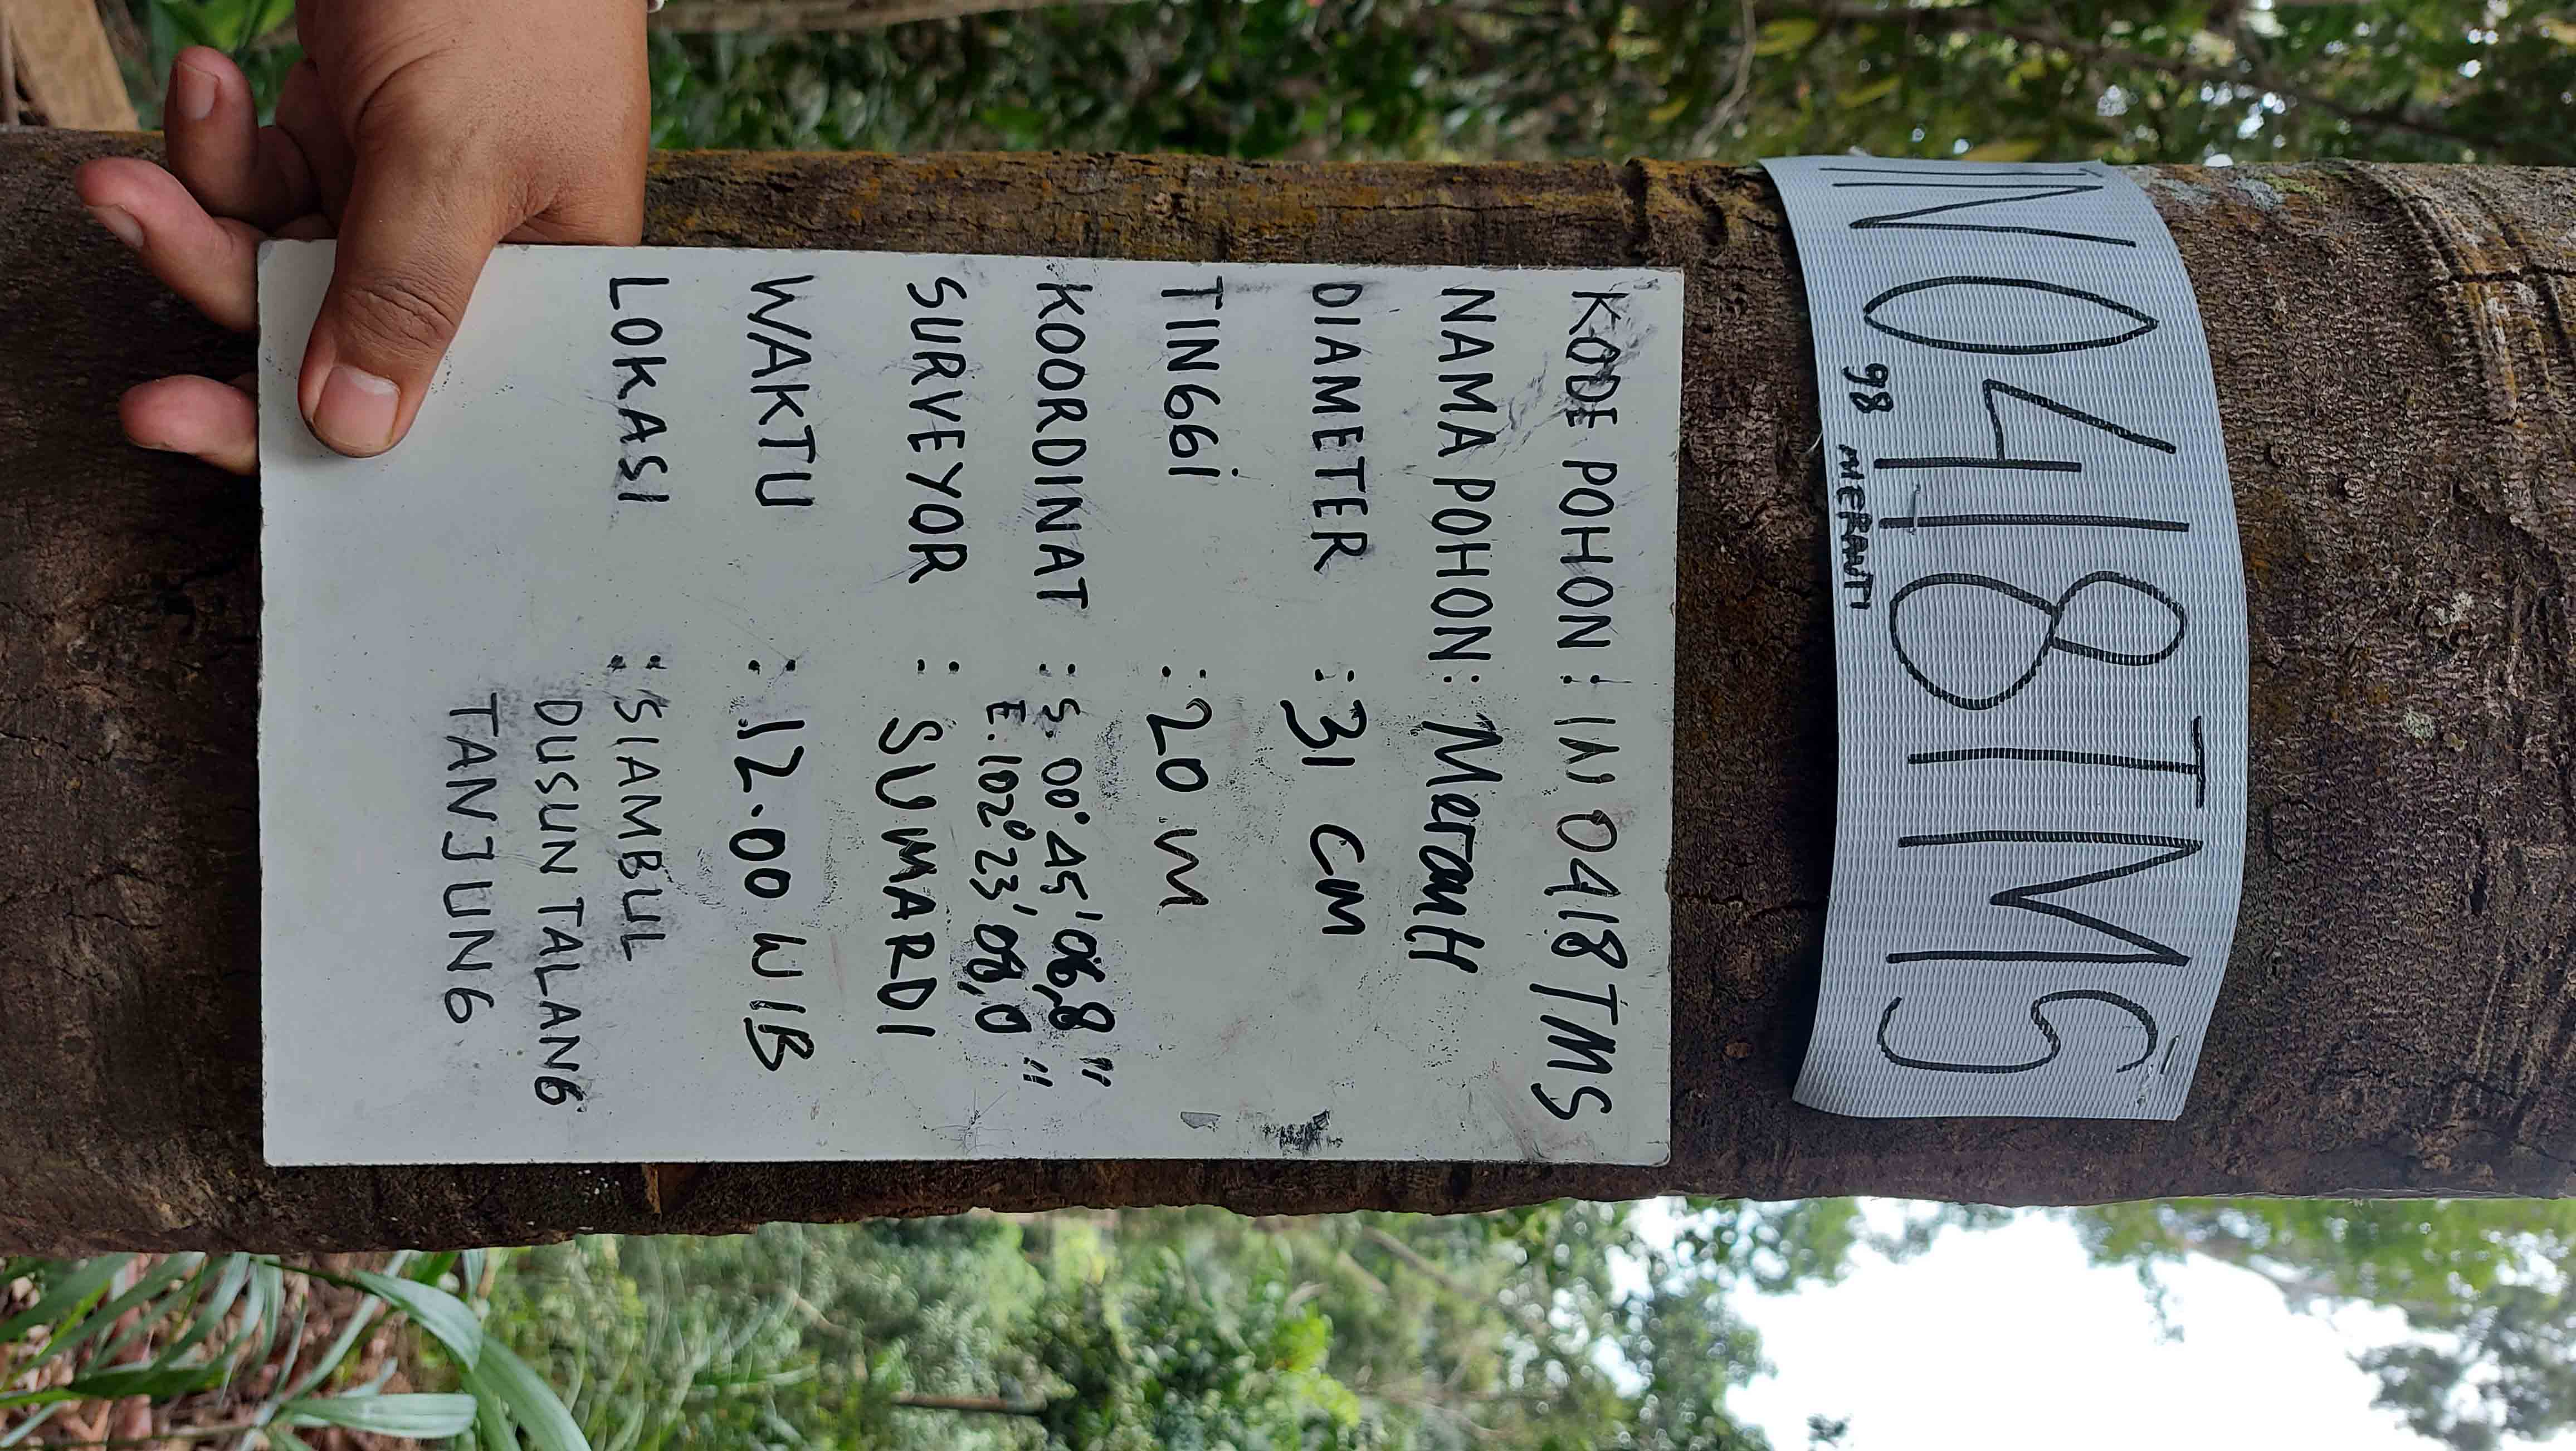 IN0418TMS
98 MERANTI
KODE POHON : IN 0418 TMS
NAMA POHON : Meranti
DIAMETER : 31 CM
TINGGI : 20 m
KOORDINAT : S. 00°45'06,8"
E. 102°23'08,0"
SURVEYOR : SUMARDI
WAKTU : 12.00 WIB
LOKASI : SIAMBUL
DUSUN TALANG
TANJUNG